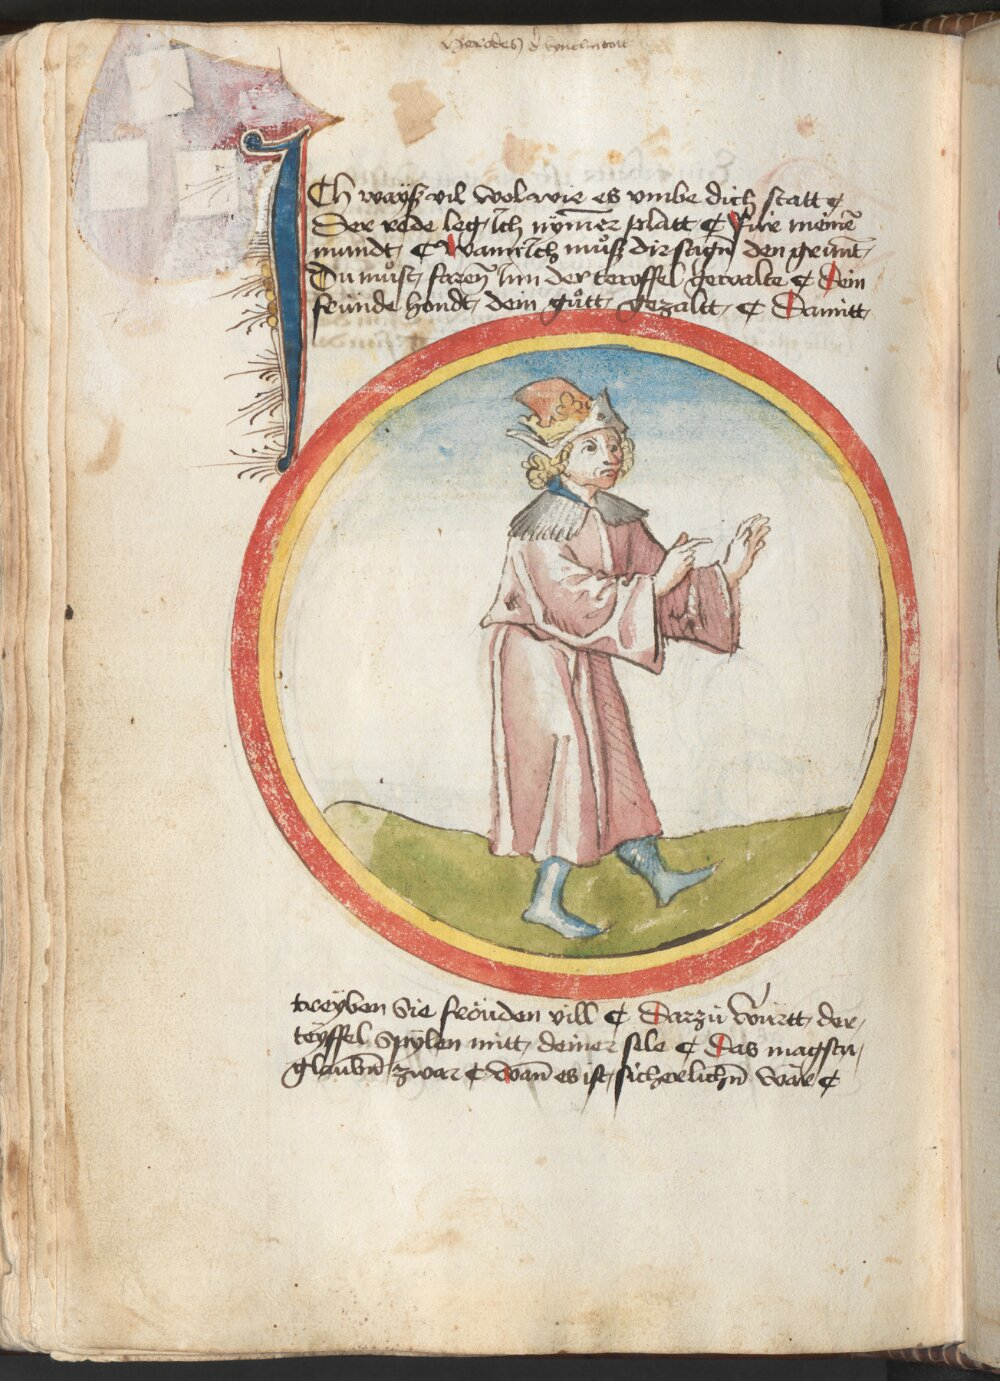 Herodes d
ICh wayß vil wol wie es vmbe dich statt ¢
Der rede leg Ich nymer platt ¢ Für meinē
mundt ¢ Wann Ich müß dir sagñ den grunt
Du müst farē Inn der teyffel gewalte ¢ Dein
fründe hondt dein gütt gezaltt ¢ Damitt
treyben Sie fröuden vill ¢ Darzü Württ der
teyffel Spylen mitt deiner sele ¢ Das magstu
glaubñ zwar ¢ Wañ es ist sicherlichñ War ¢